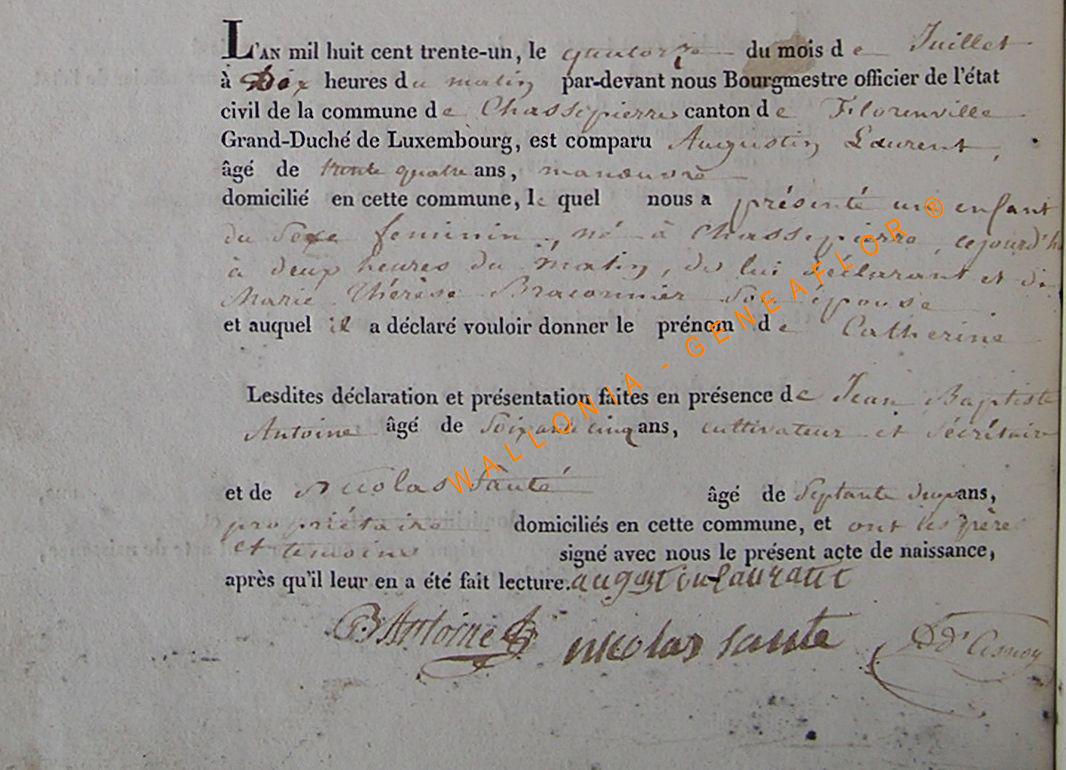 L'AN mil huit cent trente-un, le quatorze du mois de Juillet
à Dix heures du matin par-devant nous Bourgmestre officier de l'état
civil de la commune de Chassepierre canton de Florenville
Grand-Duché de Luxembourg, est comparu Augustin Laurent,
âgé de trente quatre ans, manœuvre
domicilié en cette commune, le quel nous a présenté un enfant
du Sexe feminin, né à Chassepierre, cejourd'h
à deux heures du matin, de lui déclarant et de
Marie Thérèse Braconnier son épouse
et auquel il a déclaré vouloir donner le prénom de Catherine
Lesdites déclaration et présentation faites en présence de Jean Baptiste
Antoine âgé de Soixante cinq ans, cultivateur et Sécrétaire
et de Nicolas Santé âgé de Septante ans,
propriétaire domiciliés en cette commune, et ont les père
et temoins signé avec nous le présent acte de naissance,
après qu'il leur en a été fait lecture. augustin laurant
Antoine nicolas sante
WALLONIA - GENEAFLOR ®